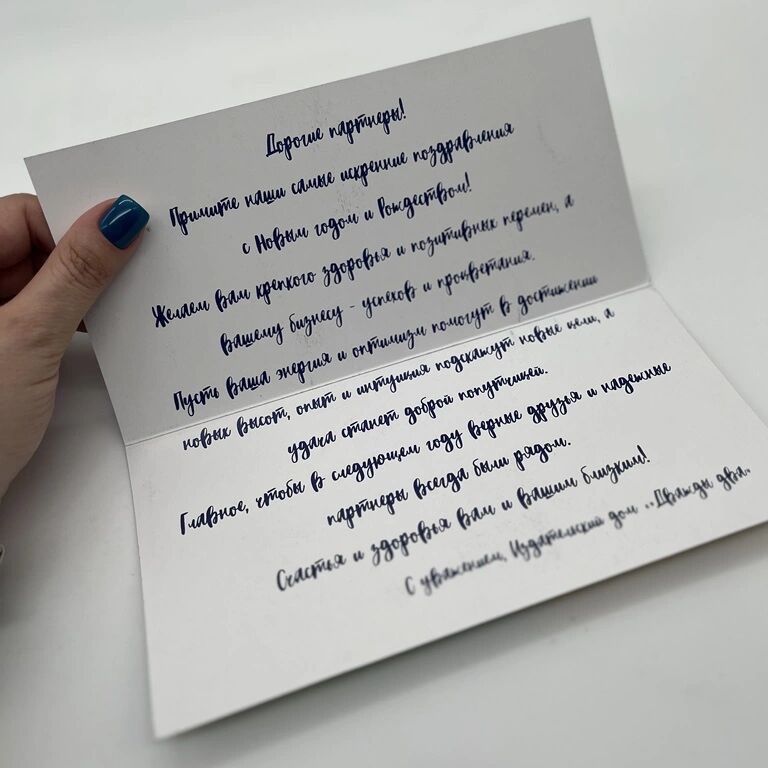 Дорогие партнеры!
Примите наши самые искренние поздравления
с Новым годом и Рождеством!
Желаем вам крепкого здоровья и позитивных перемен, а
вашему бизнесу - успехов и процветания.
Пусть ваша энергия и оптимизм помогут в достижении
новых высот, опыт и интуиция подскажут новые цели, а
удача станет доброй попутчицей.
Главное, чтобы в следующем году верные друзья и надежные
партнеры всегда были рядом.
Счастья и здоровья вам и вашим близким!
С уважением, Издательский дом "Дважды два"